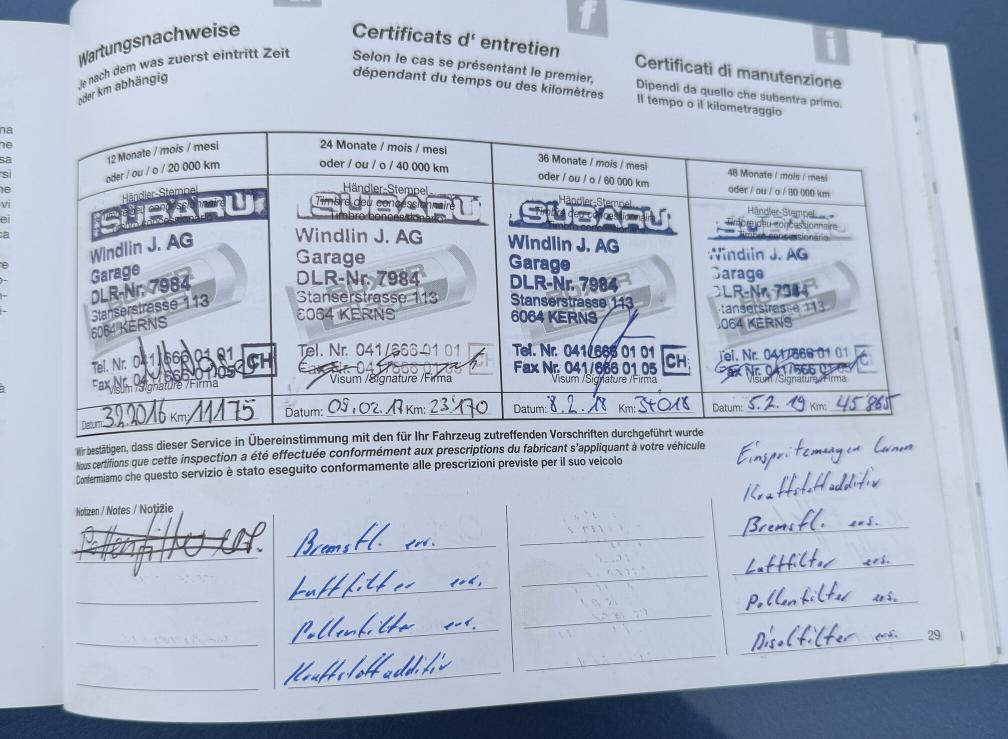 Wartungsnachweise
Je nach dem was zuerst eintritt Zeit
oder km abhängig
Certificats d' entretien
Selon le cas se présentant le premier,
dépendant du temps ou des kilomètres
Certificati di manutenzione
Dipendi da quello che subentra primo.
Il tempo o il kilometraggio
12 Monate / mois / mesi
oder / ou / o / 20 000 km
Händler-Stempel
Timbre deu concessionnaire
Timbro concessionario
SUBARU
Windlin J. AG
Garage
DLR-Nr. 7984
Stanserstrasse 113
6064 KERNS
Tel. Nr. 041/666 01 01
Fax Nr. 041/666 01 05
CH
Visum /Signature /Firma
Datum: 3.2.2016 Km: 11175
24 Monate / mois / mesi
oder / ou / o / 40 000 km
Händler-Stempel
Timbre deu concessionnaire
Timbro concessionario
SUBARU
Windlin J. AG
Garage
DLR-Nr. 7984
Stanserstrasse 113
6064 KERNS
Tel. Nr. 041/666 01 01
Fax Nr.
Visum /Signature /Firma
Datum: 09.02.17 Km: 23'170
36 Monate / mois / mesi
oder / ou / o / 60 000 km
Händler-Stempel
Timbre deu concessionnaire
Timbro concessionario
SUBARU
Windlin J. AG
Garage
DLR-Nr. 7984
Stanserstrasse 113
6064 KERNS
Tel. Nr. 041/666 01 01
Fax Nr. 041/666 01 05
CH
Visum /Signature /Firma
Datum: 8.2.18 Km: 34018
48 Monate / mois / mesi
oder / ou / o / 80 000 km
Händler-Stempel
Timbre deu concessionnaire
Timbro concessionario
SUBARU
Windlin J. AG
Garage
DLR-Nr. 7984
Stanserstrasse 113
6064 KERNS
Tel. Nr. 041/666 01 01
Fax Nr. 041/666
Visum /Signature /Firma
Datum: 5.2.19 Km: 45'865
Wir bestätigen, dass dieser Service in Übereinstimmung mit den für Ihr Fahrzeug zutreffenden Vorschriften durchgeführt wurde
Nous certifions que cette inspection a été effectuée conformément aux prescriptions du fabricant s'appliquant à votre véhicule
Confermiamo che questo servizio è stato eseguito conformamente alle prescrizioni previste per il suo veicolo
Notizen / Notes / Notizie
Pollenfilter ers.
Bremsfl. ers.
Luftfilter ers.
Pollenfilter ers.
Kraftstoffadditiv
Einspritzmengen lernen
Kraftstoffadditiv
Bremsfl. ers.
Luftfilter ers.
Pollenfilter ers.
Diselfilter ers.
29